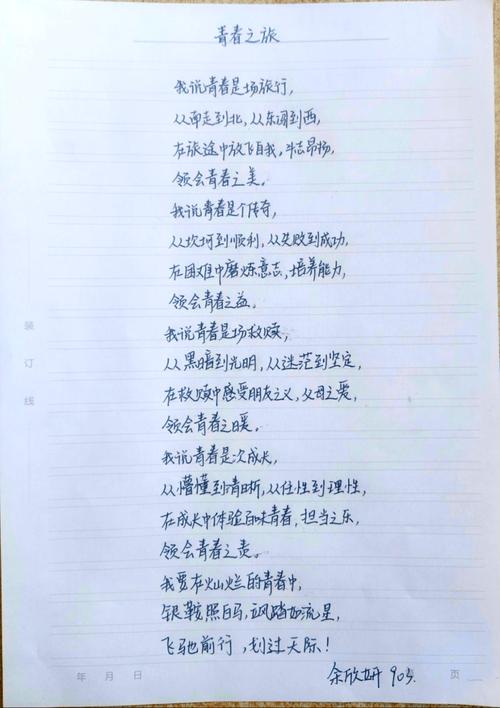 青春之旅
我说青春是场旅行，
从南走到北，从东闯到西，
在旅途中放飞自我，斗志昂扬，
领会青春之美。
我说青春是个传奇，
从坎坷到顺利，从失败到成功，
在困难中磨炼意志，培养能力，
领会青春之益。
我说青春是场救赎，
从黑暗到光明，从迷茫到坚定，
在救赎中感受朋友之义，父母之爱，
领会青春之暖。
我说青春是次成长，
从懵懂到清晰，从任性到理性，
在成长中体验百味青春，担当之乐，
领会青春之责。
我要在灿烂的青春中，
银鞍照白马，飒踏如流星，
飞驰前行，划过天际！
余欣妍 903.
装订线
年 月 日
页